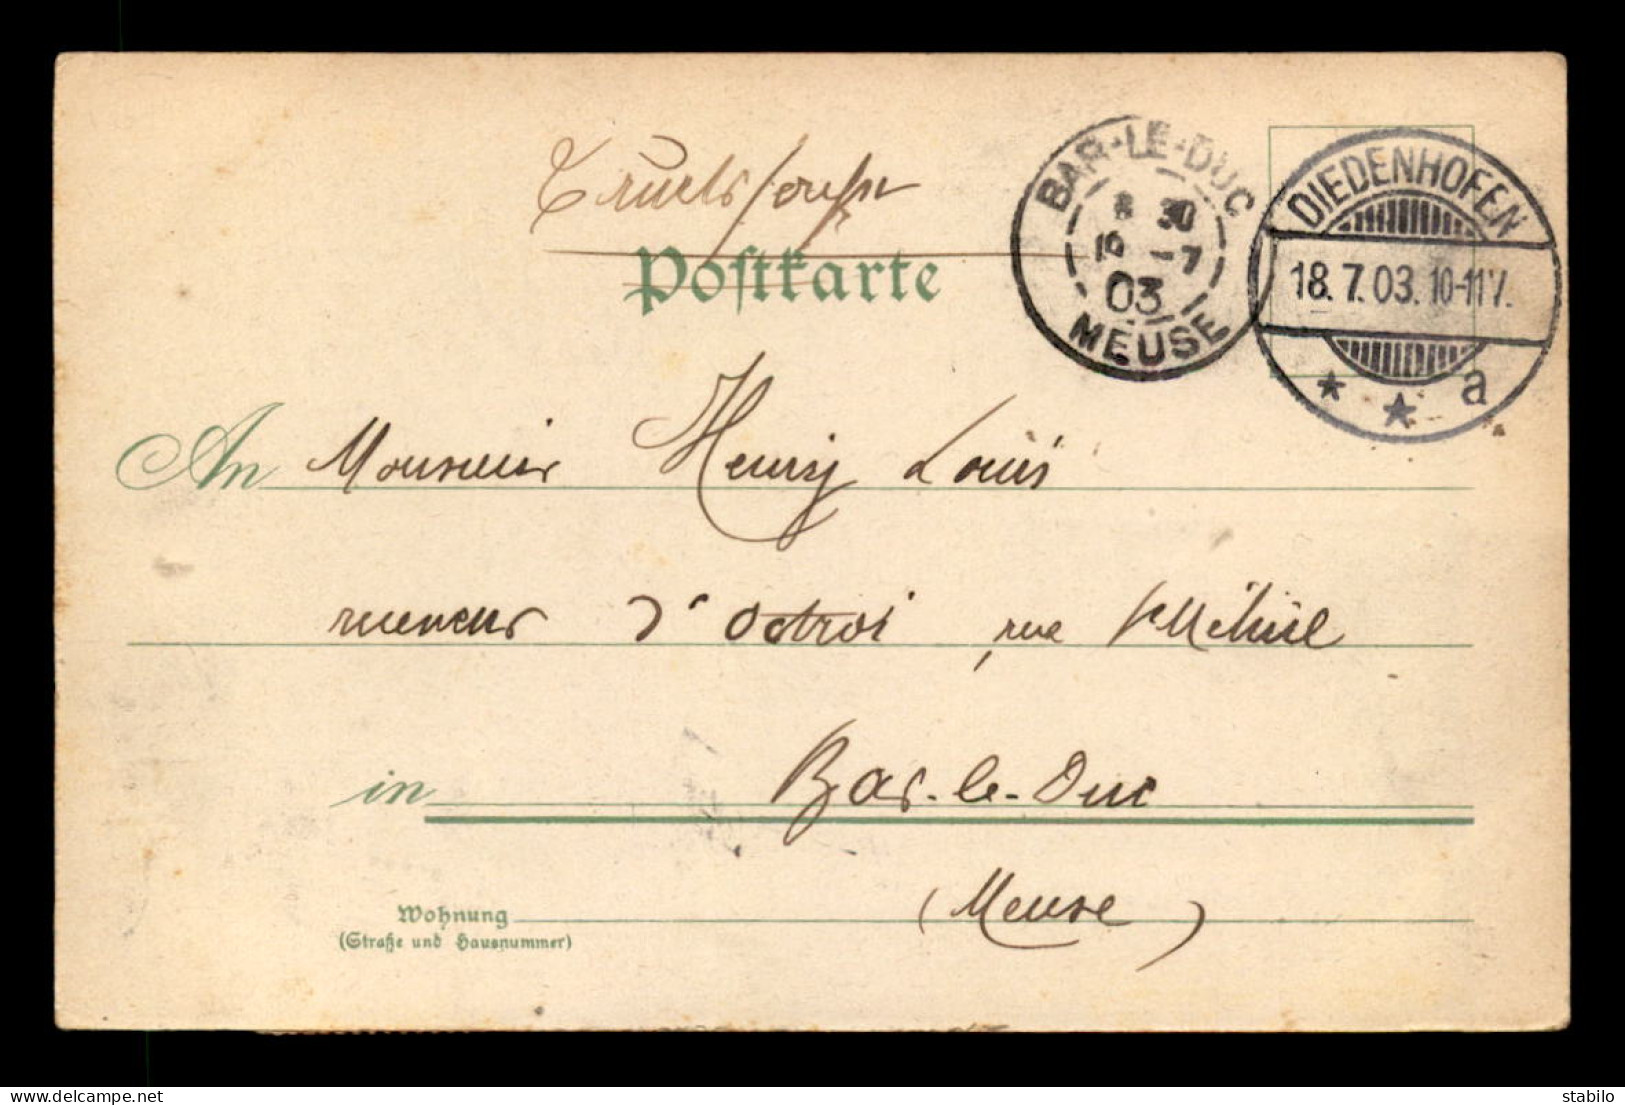 Postkarte
BAR-LE-DUC
8 30
19 -7
03
MEUSE
DIEDENHOFEN
18.7.03.10-11V.
* * a
An Monsieur Henry Louis
receveur d'octroi, rue
in Bar-le-Duc
(Meuse)
Wohnung
(Straße und Hausnummer)
stabilo